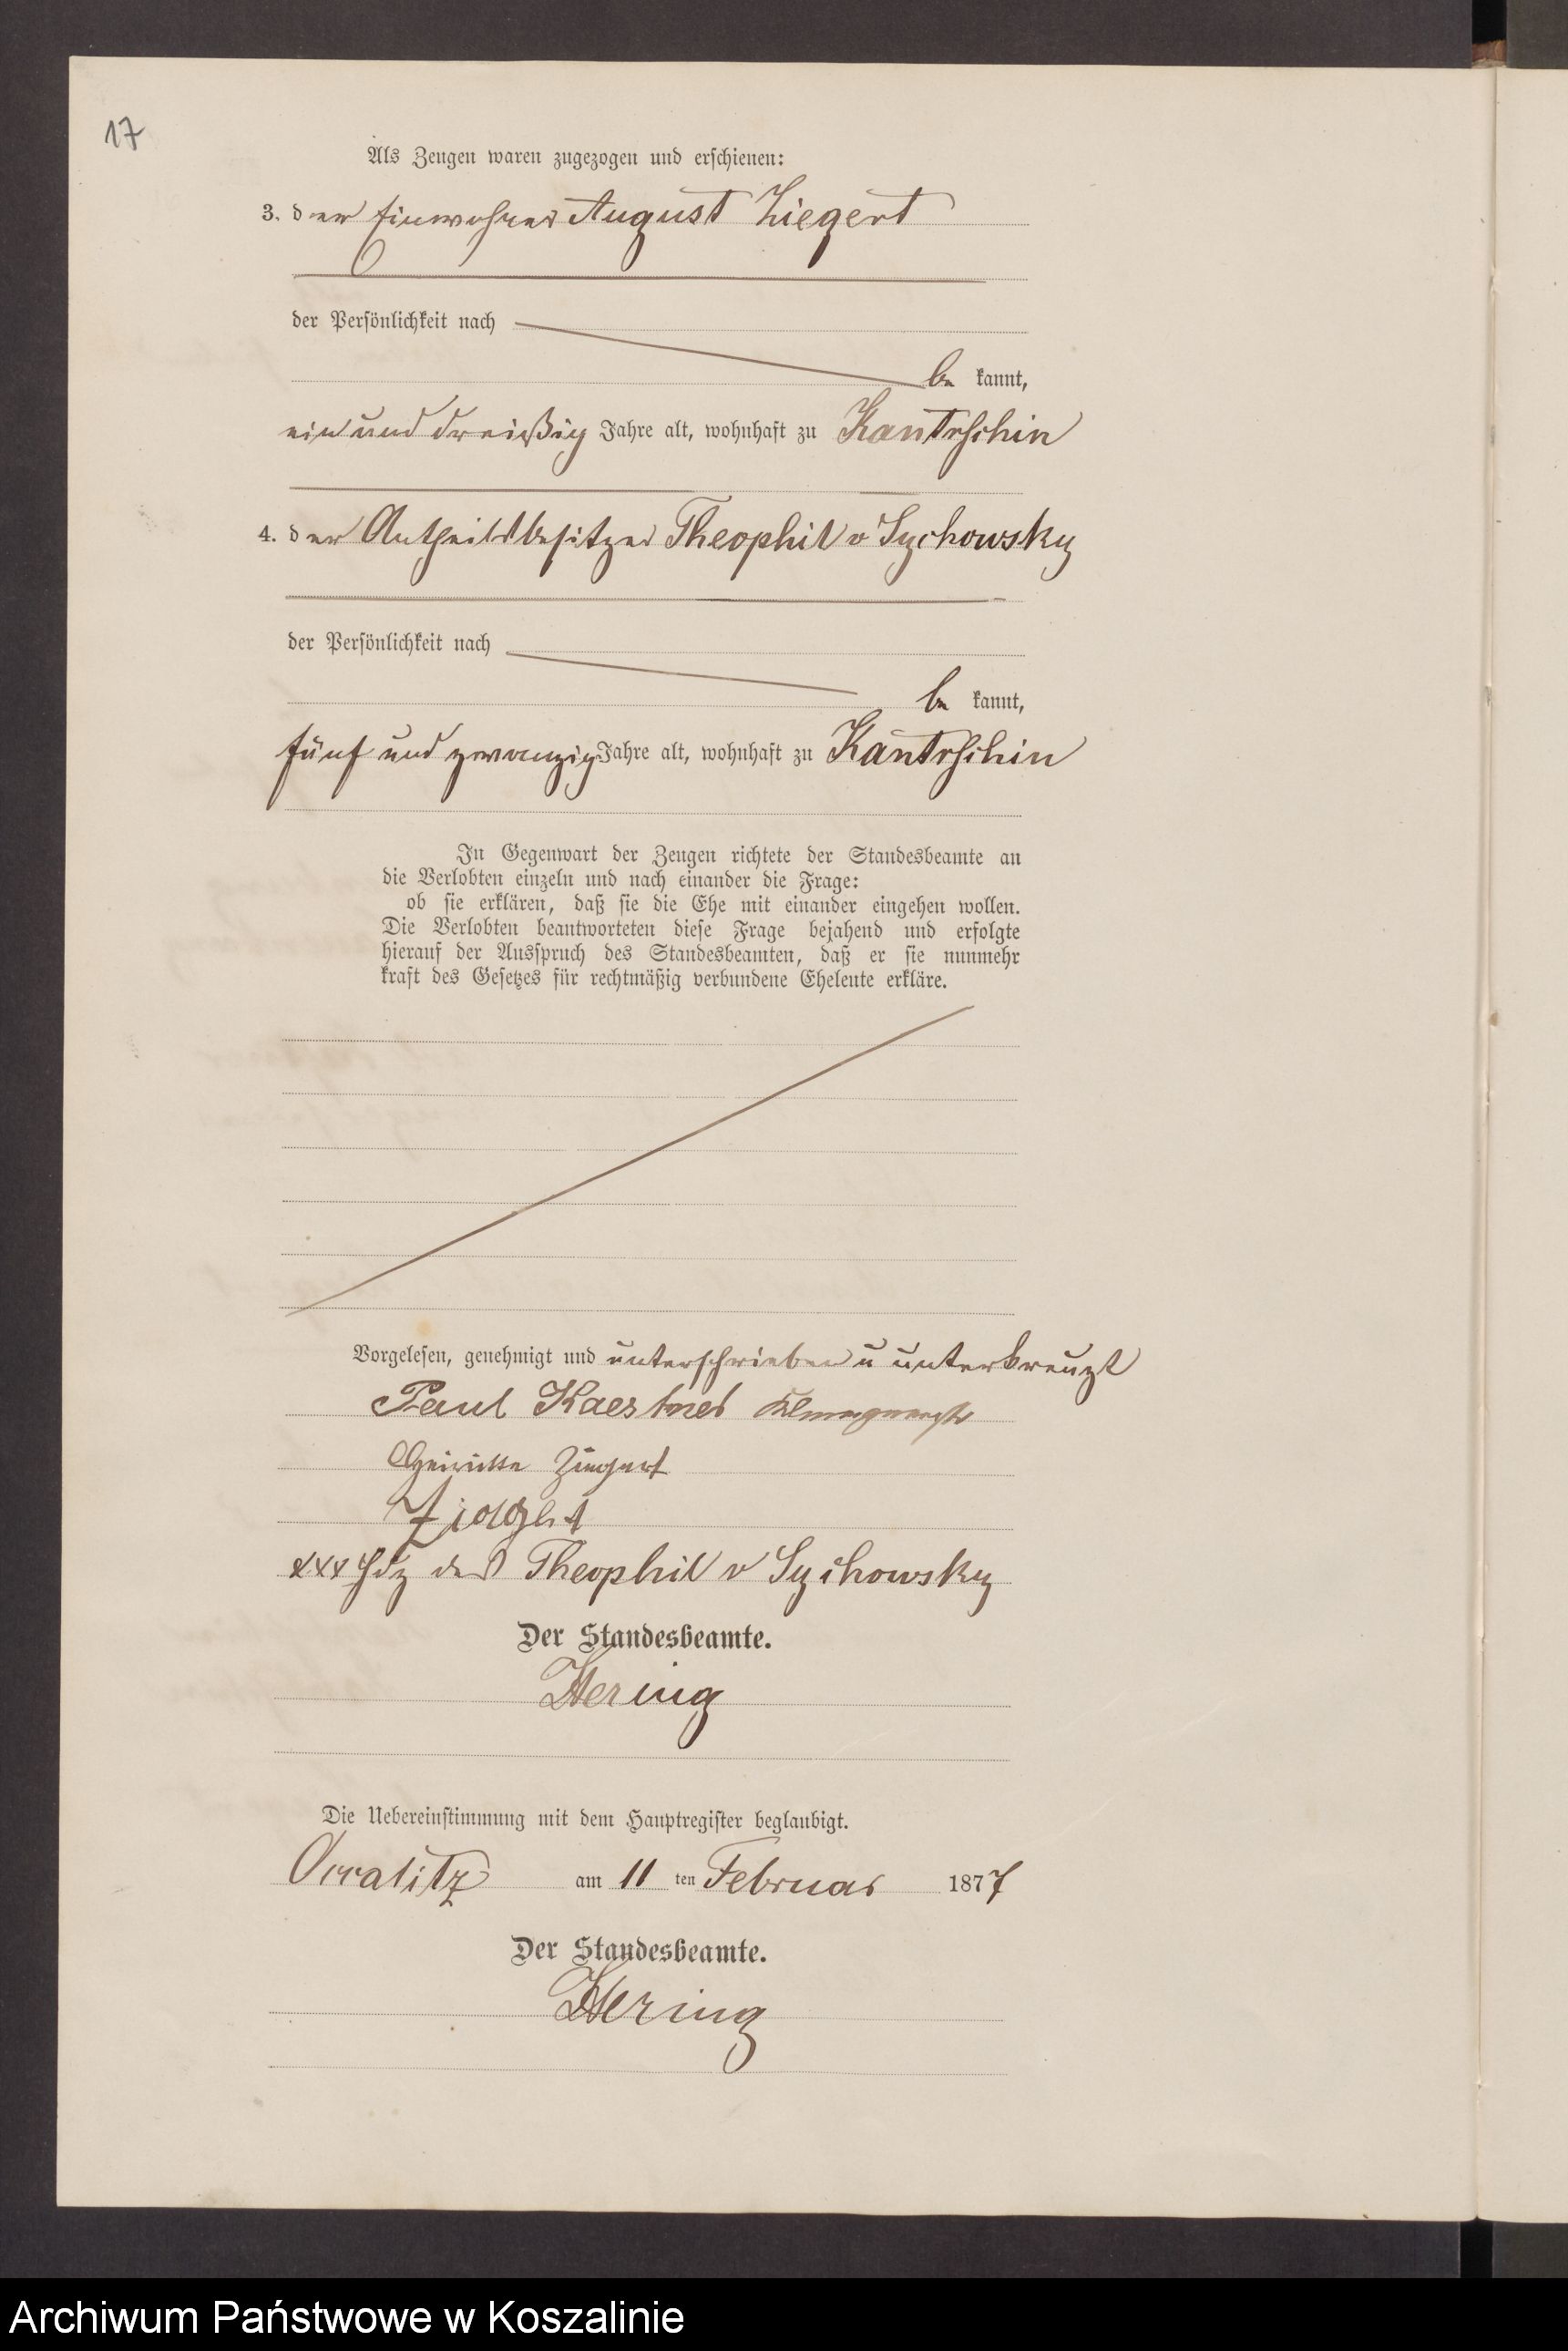 17
Als Zeugen waren zugezogen und erschienen:
3. der Einwohner August Ziegert
der Persönlichkeit nach
be kannt,
ein und dreißig Jahre alt, wohnhaft zu Kantrschin
4. der Antheilsbesitzer Theophil v Sychowsky
der Persönlichkeit nach
be kannt,
fünf und zwanzig Jahre alt, wohnhaft zu Kantrschin
In Gegenwart der Zeugen richtete der Standesbeamte an
die Verlobten einzeln und nach einander die Frage:
ob sie erklären, daß sie die Ehe mit einander eingehen wollen.
Die Verlobten beantworteten diese Frage bejahend und erfolgte
hierauf der Ausspruch des Standesbeamten, daß er sie nunmehr
kraft des Gesetzes für rechtmäßig verbundene Eheleute erkläre.
Vorgelesen, genehmigt und unterschrieben u unterkreuzt
Paul Kaestner
Ziegert
xxx Hdz des Theophil v Sychowsky
Der Standesbeamte.
Hering
Die Uebereinstimmung mit dem Hauptregister beglaubigt.
Occalitz am 11 ten Februar 1877
Der Standesbeamte.
Hering
Archiwum Państwowe w Koszalinie